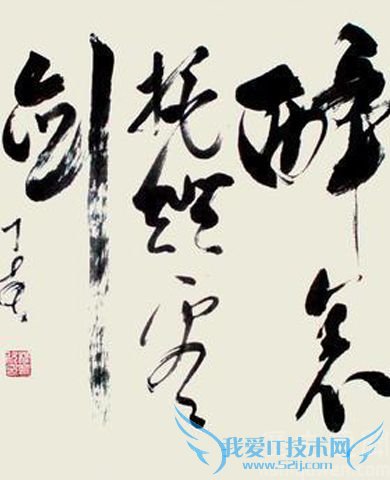 醉裏
挑燈看
劍
丁亥
我爱IT技术网
www.52ij.com